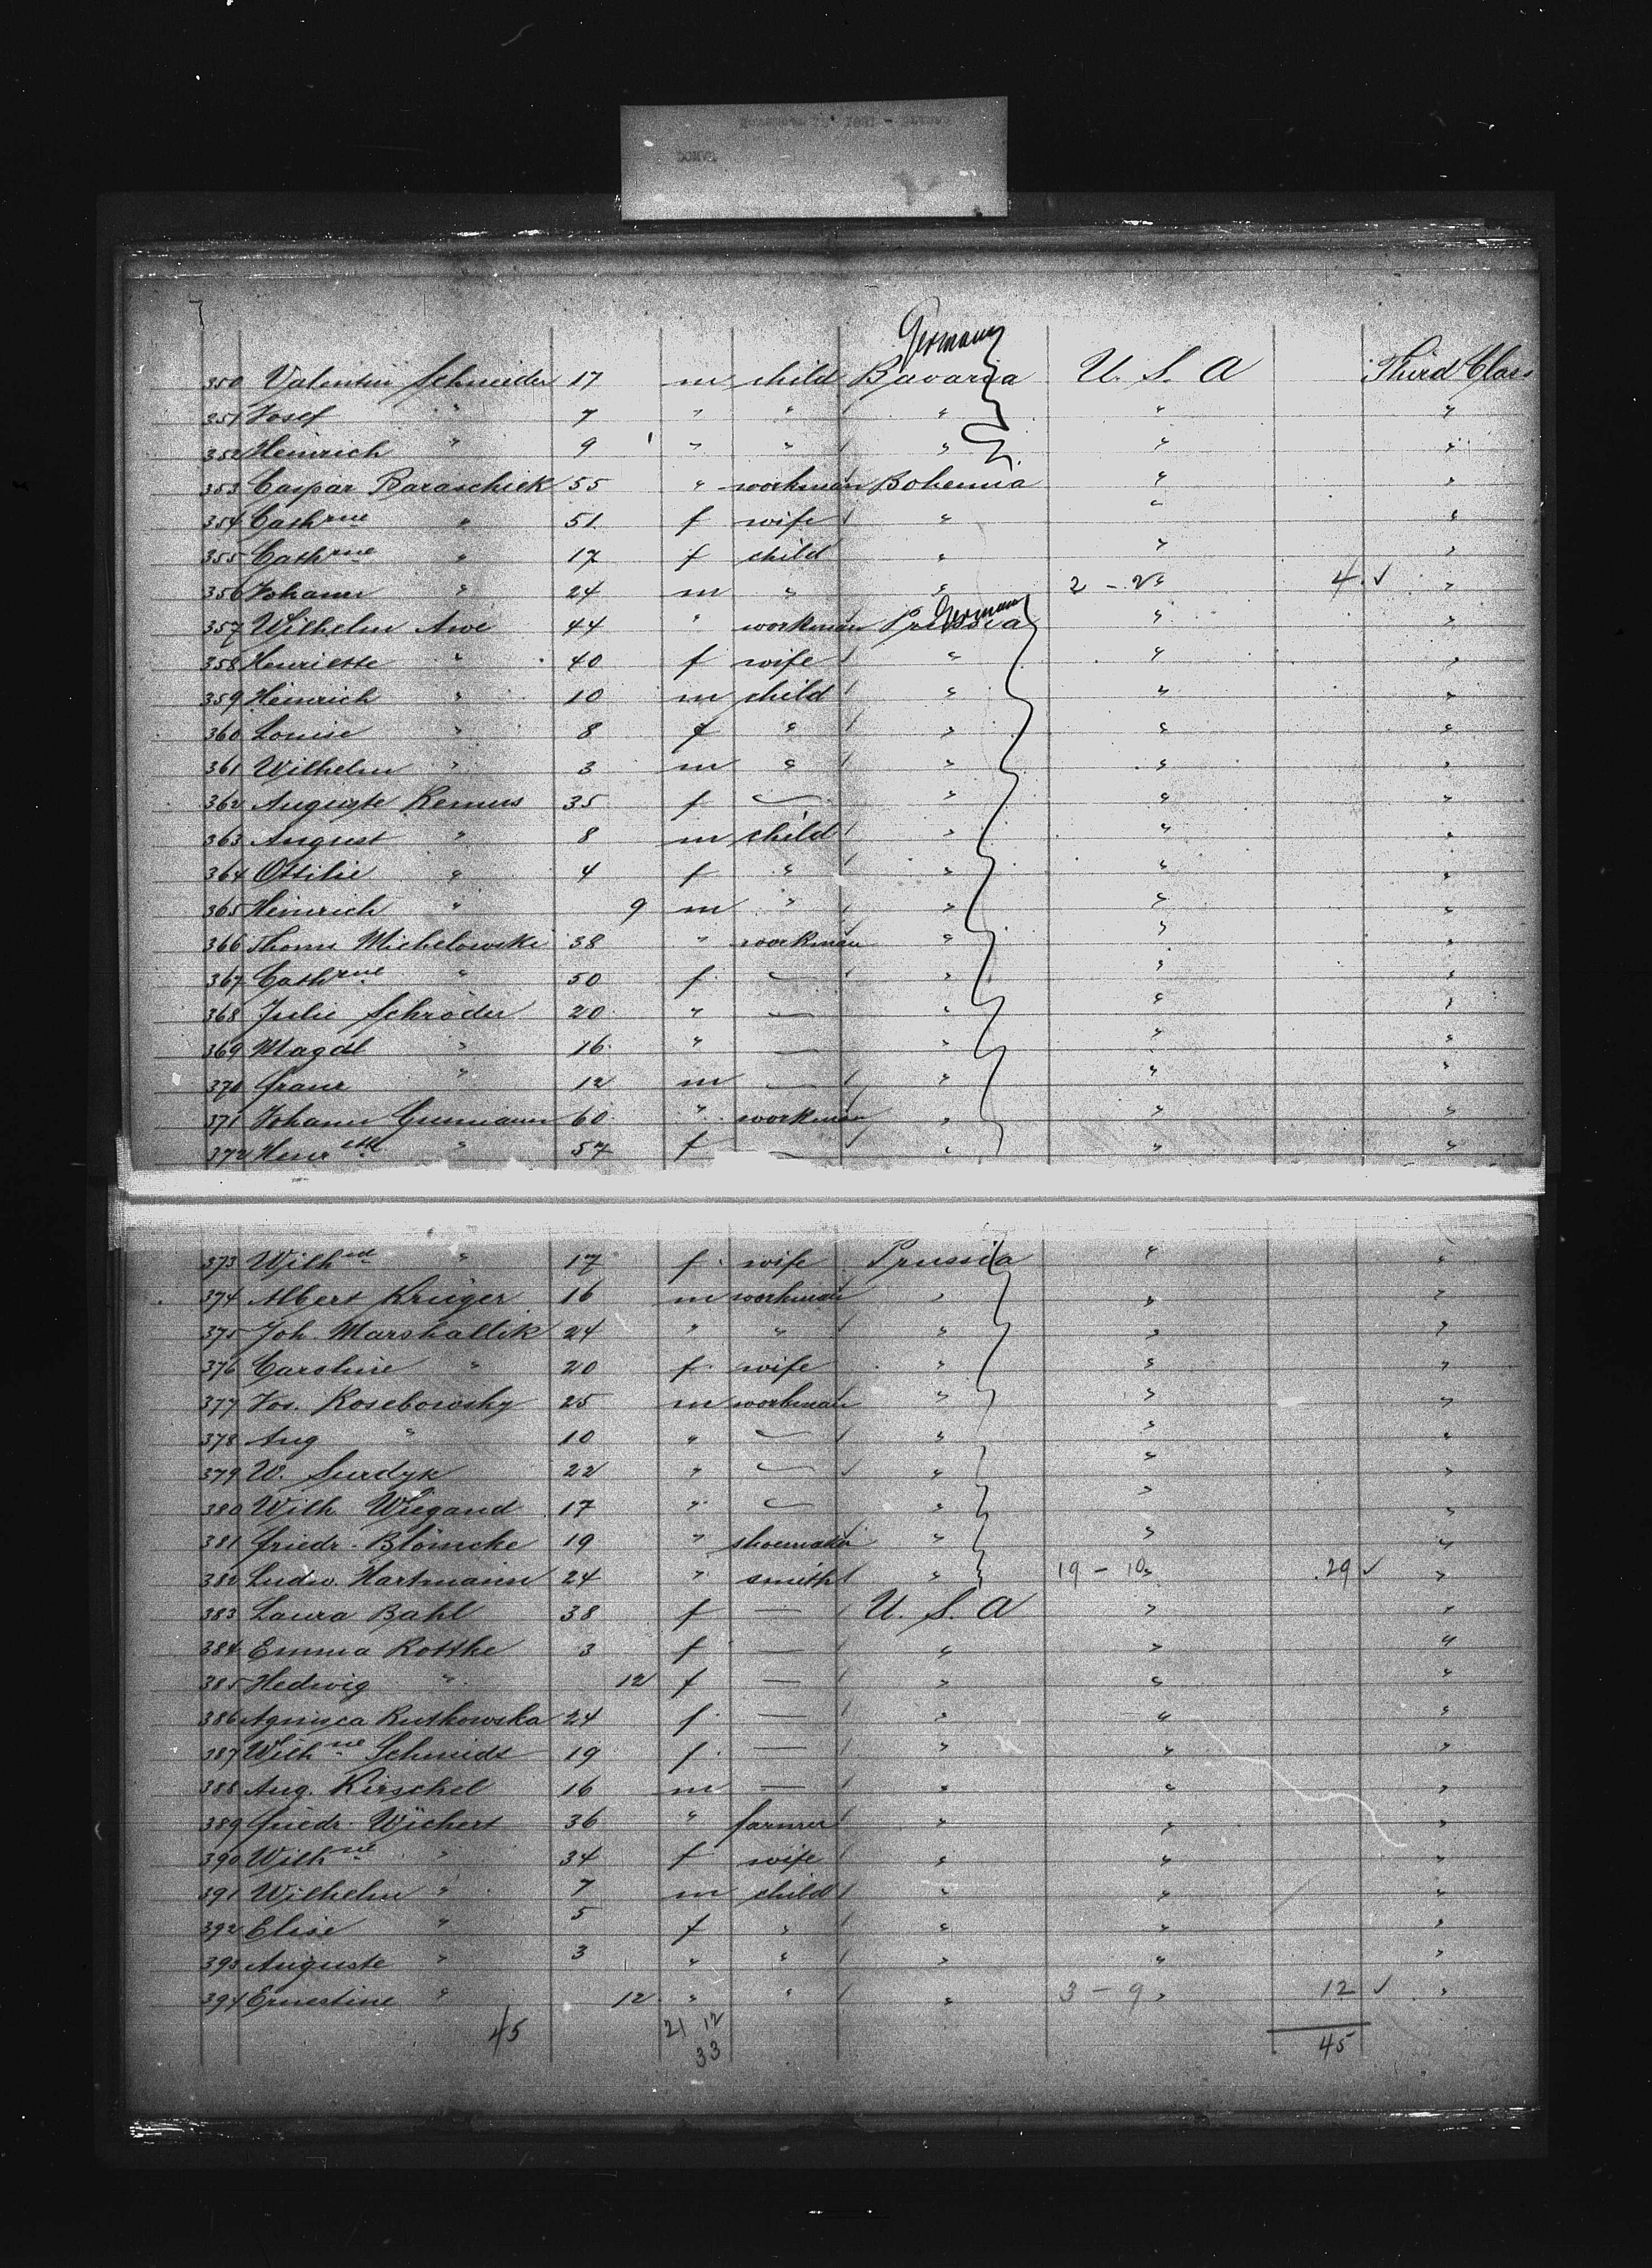 Germany
350 Valentin Schneider 17 m child Bavaria U. S. A Third Class
351 Josef " 7 " " " " "
352 Heinrich " 9 " " " " "
353 Caspar Baraschick 55 " workman Bohemia " "
354 Cathrne " 51 f wife " " "
355 Cathrne " 17 f child " " "
356 Johann " 24 m " " 2 - 2 " 4 ✓ "
Germany
357 Wilhelm Awe 44 " workman Prussia " "
358 Henriette " 40 f wife " " "
359 Heinrich " 10 m child " " "
360 Louise " 8 f " " " "
361 Wilhelm " 3 m " " " "
362 Auguste Remus 35 f — " " "
363 August " 8 m child " " "
364 Ottilie " 4 f " " " "
365 Heinrich " 9 m " " " "
366 Thoms Michelowski 38 " workman " " "
367 Cathrne " 50 f — " " "
368 Julie Schröder 20 " — " " "
369 Magdl " 16 " — " " "
370 Franz " 12 m — " " "
371 Johann Gusmann 60 " workman " " "
372 Henrette " 57 f — " " "
373 Wilhne " 17 f wife Prussia " "
374 Albert Krüger 16 m workman " " "
375 Joh. Marshallik 24 " " " " "
376 Caroline " 20 f wife " " "
377 Jos. Rosebowsky 25 m workman " " "
378 Aug " 10 " — " " "
379 W. Surdyk 22 " — " " "
380 Wilh. Wiegand 17 " — " " "
381 Friedr. Blömcke 19 " shoemaker " " "
382 Ludw. Hartmann 24 " smith " 19 - 10 " 29 ✓ "
383 Laura Bahl 38 f — U. S. A " "
384 Emma Rottke 3 f — " " "
385 Hedwig " 12 f — " " "
386 Rutkowska 24 f — " " "
387 Wilhne Schmidt 19 f — " " "
388 Aug. Kirschel 16 m — " " "
389 Friedr. Wichert 36 " farmer " " "
390 Wilhne " 34 f wife " " "
391 Wilhelm " 7 m child " " "
392 Elise " 5 f " " " "
393 Auguste " 3 " " " " "
394 Ernestine " 12 " " " 3 - 9 " 12 ✓ "
45 21 12 45
33